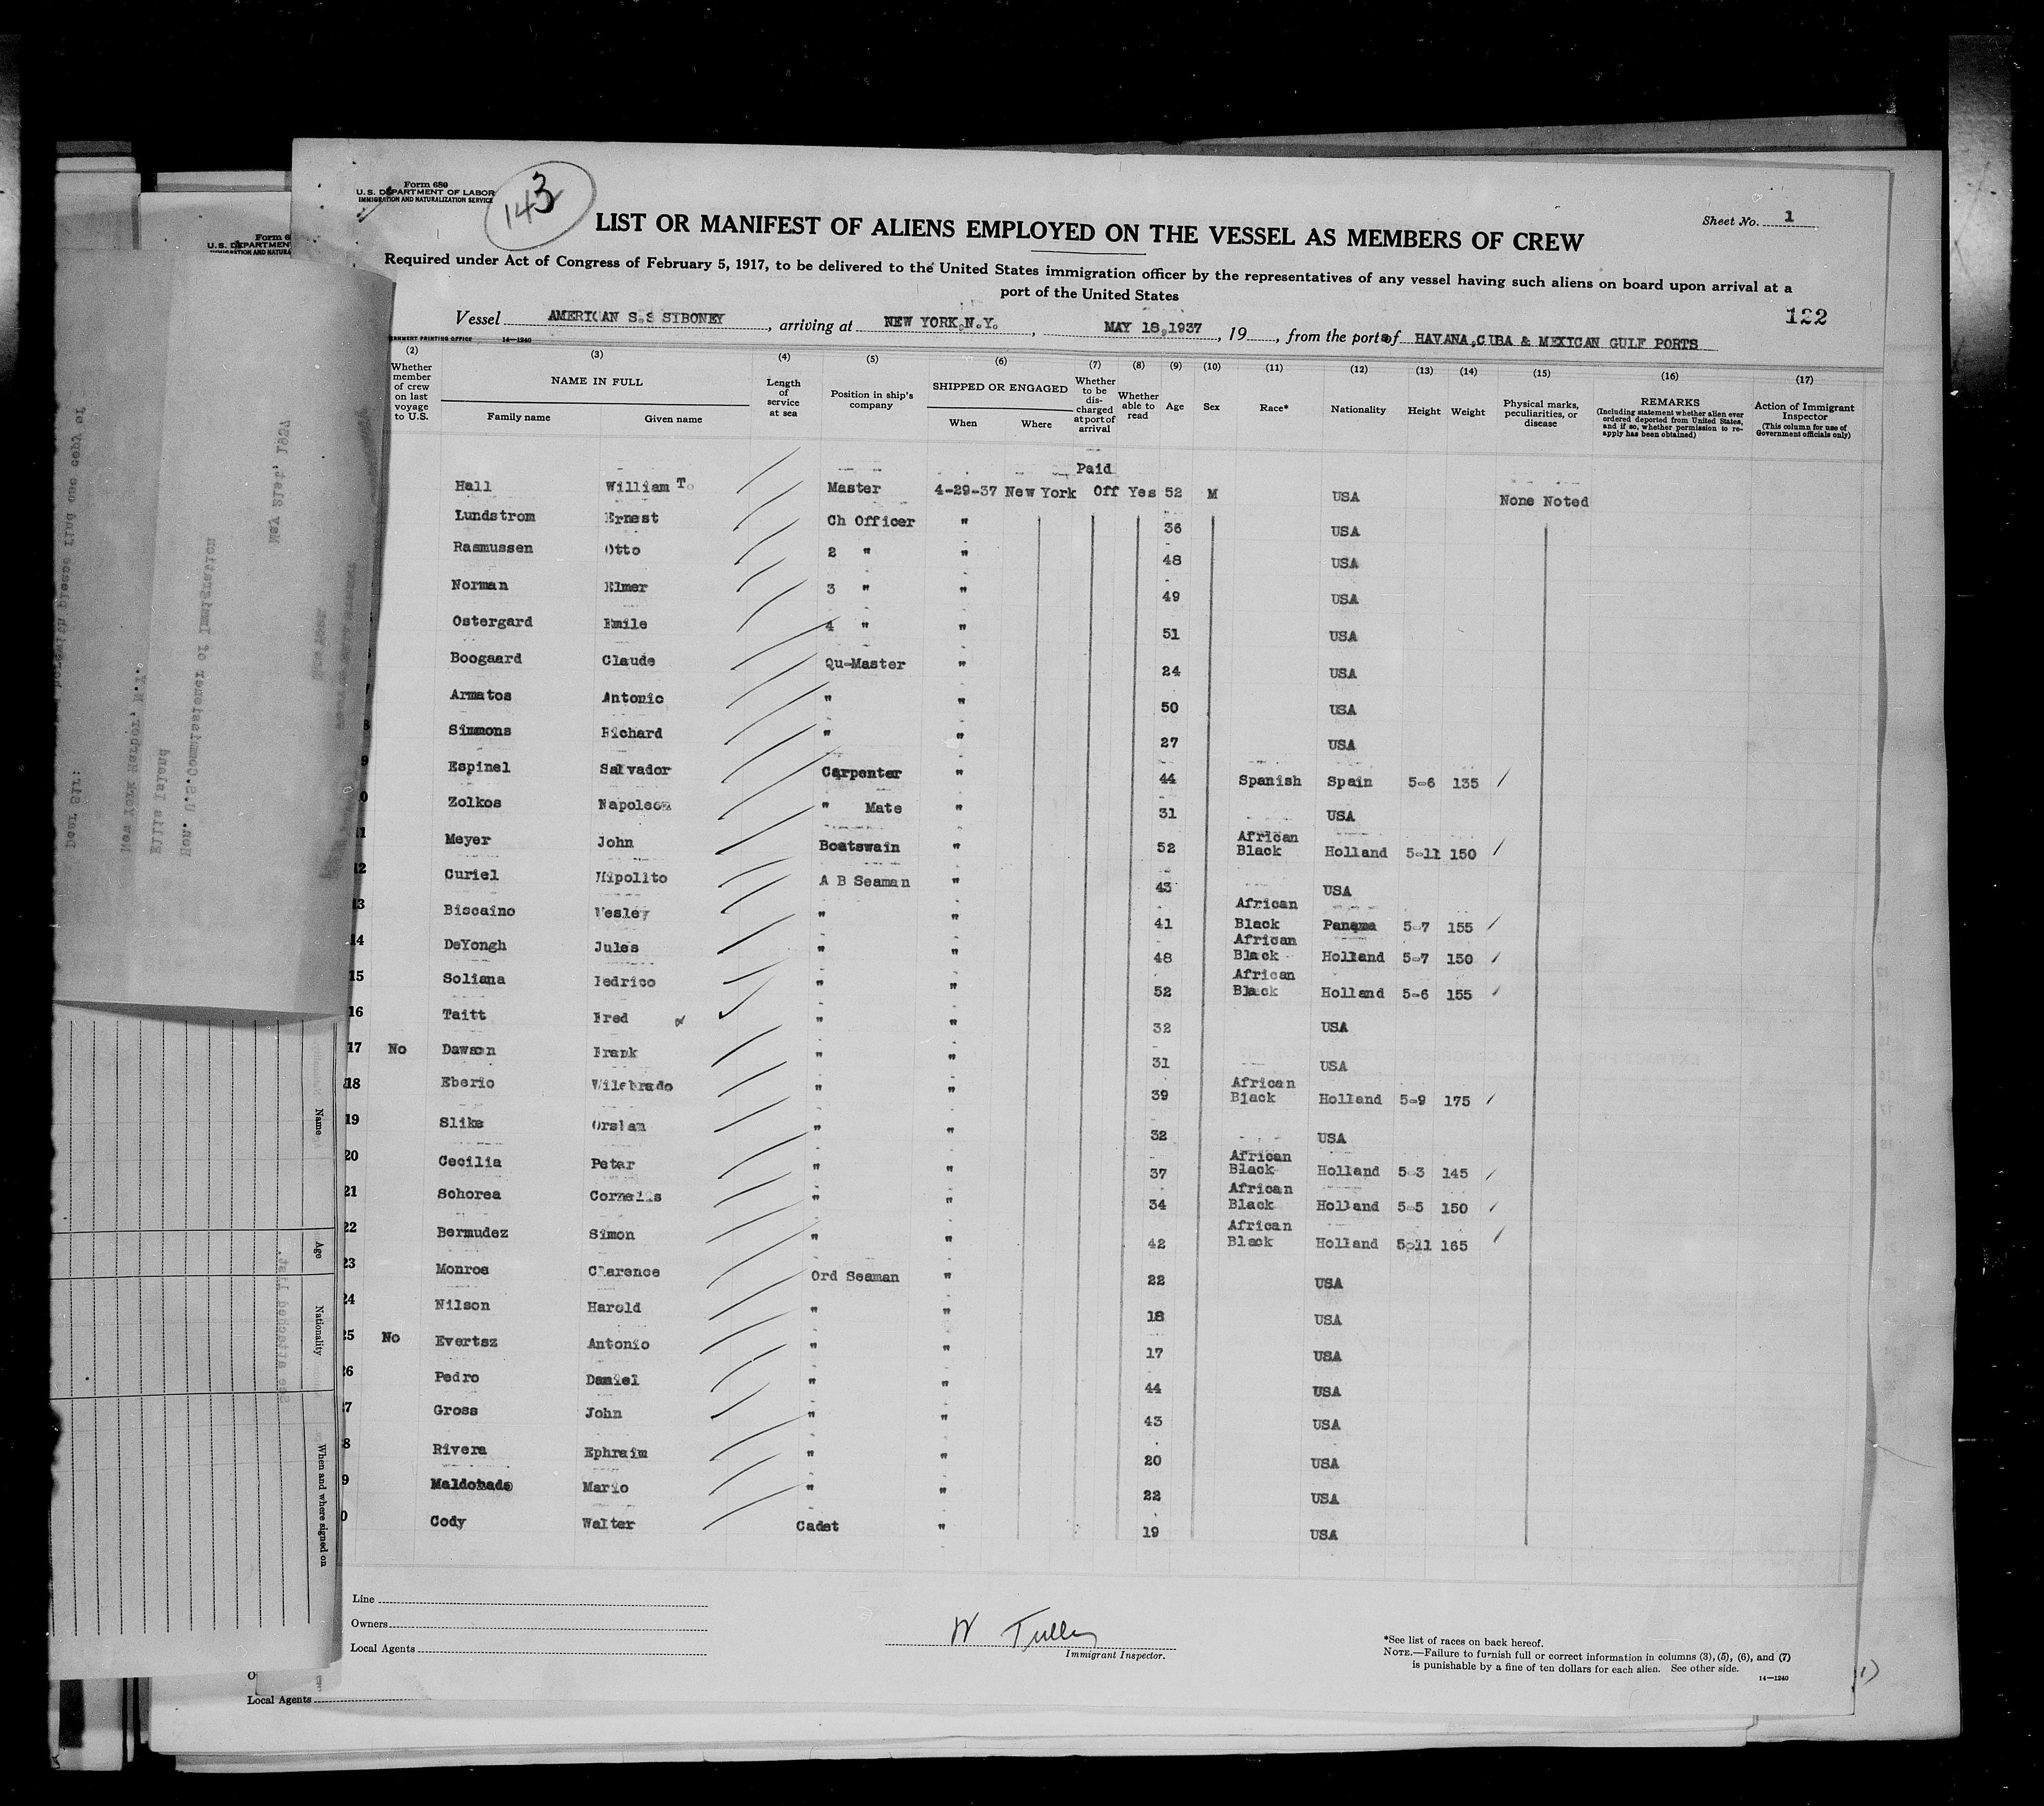 Form 680
U. S. DEPARTMENT OF LABOR
IMMIGRATION AND NATURALIZATION SERVICE
143
LIST OR MANIFEST OF ALIENS EMPLOYED ON THE VESSEL AS MEMBERS OF CREW
Sheet No. 1
Required under Act of Congress of February 5, 1917, to be delivered to the United States immigration officer by the representatives of any vessel having such aliens on board upon arrival at a
port of the United States
122
Vessel AMERICAN S.S SIBONEY, arriving at NEW YORK.N.Y., MAY 18,1937, 19, from the ports of HAVANA,CUBA & MEXICAN GULF PORTS
14—1240
(2) (3) (4) (5) (6) (7) (8) (9) (10) (11) (12) (13) (14) (15) (16) (17)
Whether member of crew on last voyage to U.S.
NAME IN FULL
Family name
Given name
Length of service at sea
Position in ship's company
SHIPPED OR ENGAGED
When
Where
Whether to be discharged at port of arrival
Whether able to read
Age
Sex
Race*
Nationality
Height
Weight
Physical marks, peculiarities, or disease
REMARKS
(Including statement whether alien ever ordered deported from United States, and if so, whether permission to reapply has been obtained)
Action of Immigrant Inspector
(This column for use of Government officials only)
Paid
Hall William T. Master 4-29-37 New York Off Yes 52 M USA None Noted
Lundstrom Ernest Ch Officer " 36 USA
Rasmussen Otto 2 " " 48 USA
Norman Elmer 3 " " 49 USA
Ostergard Emile 4 " " 51 USA
Boogaard Claude Qu-Master " 24 USA
Armatos Antonio " " 50 USA
Simmons Richard " " 27 USA
Espinel Salvador Carpenter " 44 Spanish Spain 5-6 135
Zolkos Napoleon " Mate " 31 USA
Meyer John Boatswain " 52 African Black Holland 5-11 150
Curiel Hipolito A B Seaman " 43 USA
13 Biscaino Wesley " " 41 African Black Panama 5-7 155
14 DeYongh Jules " " 48 African Black Holland 5-7 150
15 Soliana Fedrico " " 52 African Black Holland 5-6 155
16 Taitt Fred " " 32 USA
17 No Dawson Frank " " 31 USA
18 Eberio Wilebrado " " 39 African Black Holland 5-9 175
19 Slike Orslan " " 32 USA
20 Cecilia Peter " " 37 African Black Holland 5-3 145
21 Schorea Cornelis " " 34 African Black Holland 5-5 150
22 Bermudez Simon " " 42 African Black Holland 5-11 165
23 Monroe Clarence Ord Seaman " 22 USA
24 Nilson Harold " " 18 USA
25 No Evertsz Antonio " " 17 USA
26 Pedro Daniel " " 44 USA
Gross John " " 43 USA
Rivera Ephraim " " 20 USA
Maldonado Mario " " 22 USA
Cody Walter Cadet " 19 USA
Line
Owners
Local Agents
W Tully
Immigrant Inspector.
*See list of races on back hereof.
NOTE.—Failure to furnish full or correct information in columns (3), (5), (6), and (7)
is punishable by a fine of ten dollars for each alien. See other side.
14—1240
U. S. DEPARTMEN
May 21st, 1937
Hon. U.S.Commissioner of Immigration
Ellis Island
New York Harbor, N.Y.
Dear Sir:
herewith please find one copy of
See attached list.
Name
Age
Nationality
When and where signed on
Local Agents